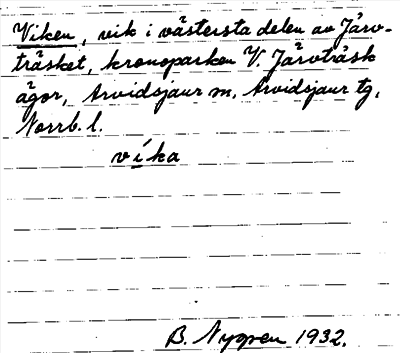 Viken, vik i västersta delen av Järv-
träsket, kronoparken V. Järvträsk
ägor, Arvidsjaur sn, Arvidsjaur tg,
Norrb. l.
víka
B. Nygren 1932.